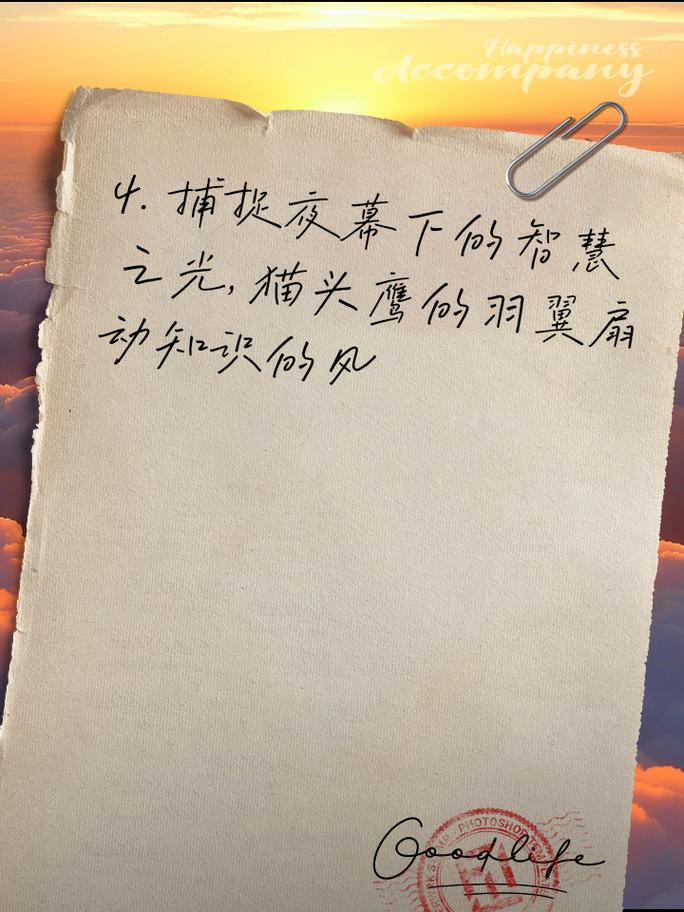 Happiness
Accompany
4. 捕捉夜幕下的智慧
之光,猫头鹰的羽翼扇
动知识的风
PHOTOSHOP
Goodlife